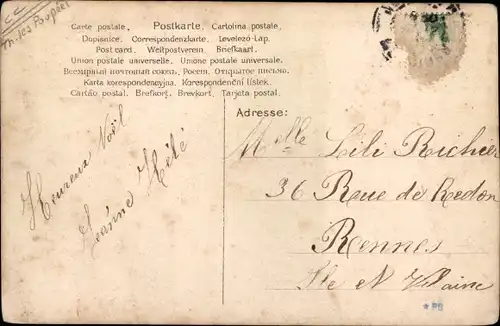 Th. les Poupées
Carte postale, Postkarte. Cartolina postale,
Dopisnice. Correspondenzkarte. Levelező-Lap.
Post card. Weltpostverein. Briefkaart.
Union postale universelle. Unione postale universale.
Всемірный почтовый союзъ. Россія. Открытое письмо.
Karta korespondencyjna. Korespondenční lístek.
Cartão postal. Brefkort. Brevkort. Tarjeta postal.
Heureux Noël
Jeanne
Adresse:
Melle Lili Richer
36 Rue de Redon
Rennes
Ile et Vilaine